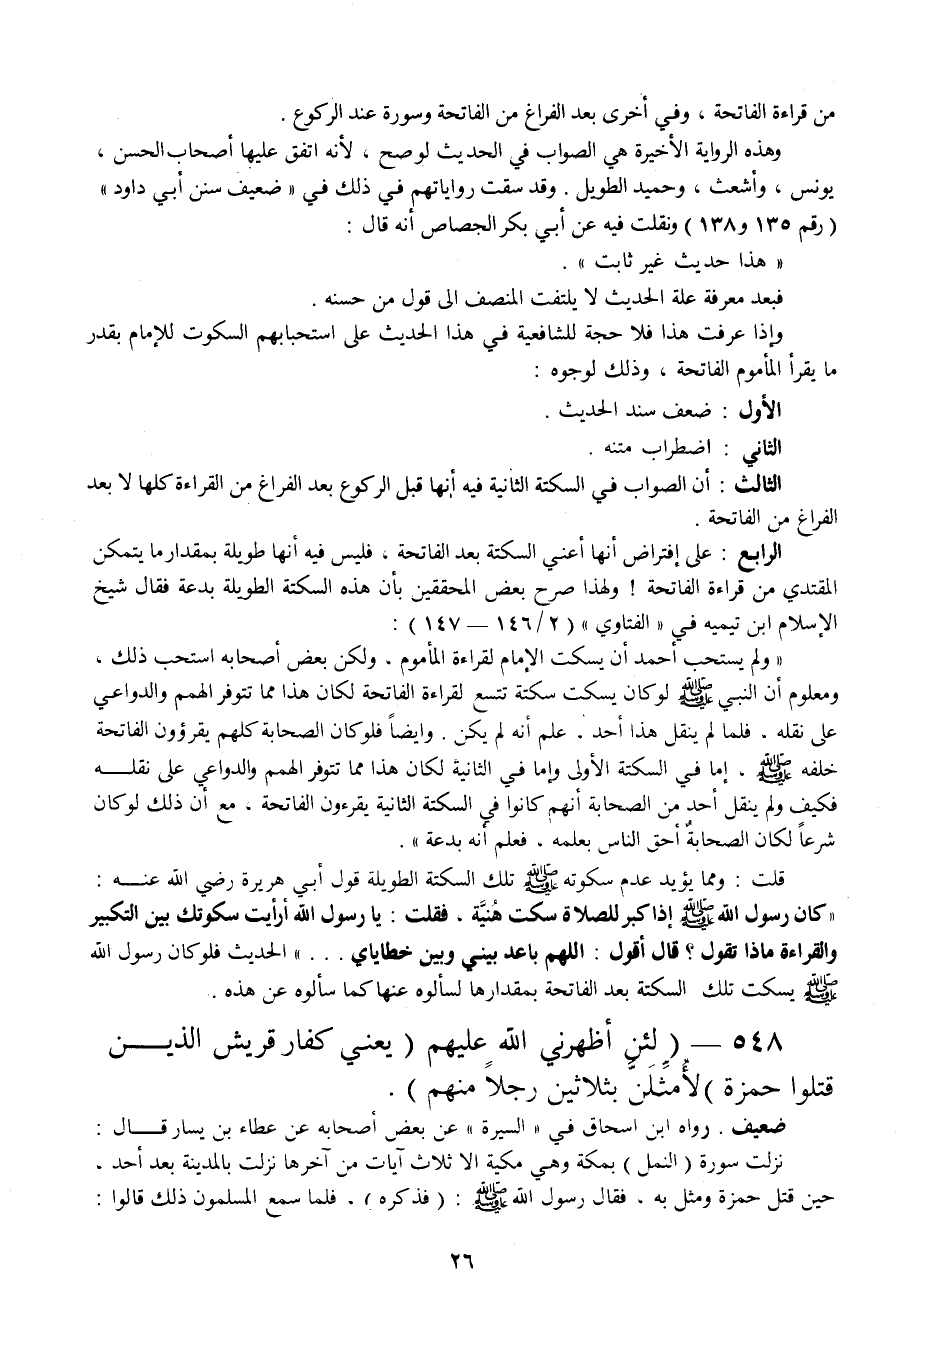 من قراءة الفاتحة ، وفي أخرى بعد الفراغ من الفاتحة وسورة عند الركوع .
وهذه الرواية الأخيرة هي الصواب في الحديث لو صح ، لأنه اتفق عليها أصحاب الحسن ،
يونس ، وأشعث ، وحميد الطويل . وقد سقت رواياتهم في ذلك في « ضعيف سنن أبي داود »
( رقم ١٣٥ و١٣٨ ) ونقلت فيه عن أبي بكر الجصاص أنه قال :
« هذا حديث غير ثابت » .
فبعد معرفة علة الحديث لا يلتفت المنصف الى قول من حسنه .
وإذا عرفت هذا فلا حجة للشافعية في هذا الحديث على استحبابهم السكوت للإمام بقدر
ما يقرأ المأموم الفاتحة ، وذلك لوجوه :
الأول : ضعف سند الحديث .
الثاني : اضطراب متنه .
الثالث : أن الصواب في السكتة الثانية فيه أنها قبل الركوع بعد الفراغ من القراءة كلها لا بعد
الفراغ من الفاتحة .
الرابع : على إفتراض أنها أعني السكتة بعد الفاتحة ، فليس فيه أنها طويلة بمقدار ما يتمكن
المقتدي من قراءة الفاتحة ! ولهذا صرح بعض المحققين بأن هذه السكتة الطويلة بدعة فقال شيخ
الإسلام ابن تيميه في « الفتاوي » ( ٢/ ١٤٦ — ١٤٧ ) :
« ولم يستحب أحمد أن يسكت الإمام لقراءة المأموم . ولكن بعض أصحابه استحب ذلك ،
ومعلوم أن النبي ﷺ لو كان يسكت سكتة تتسع لقراءة الفاتحة لكان هذا مما تتوفر الهمم والدواعي
على نقله . فلما لم ينقل هذا أحد . علم أنه لم يكن . وايضاً فلو كان الصحابة كلهم يقرؤون الفاتحة
خلفه ﷺ . إما في السكتة الأولى وإما في الثانية لكان هذا مما تتوفر الهمم والدواعي على نقلـــه
فكيف ولم ينقل أحد من الصحابة أنهم كانوا في السكتة الثانية يقرءون الفاتحة . مع أن ذلك لو كان
شرعاً لكان الصحابة أحق الناس بعلمه . فعلم أنه بدعة » .
قلت : ومما يؤيد عدم سكوته ﷺ تلك السكتة الطويلة قول أبي هريرة رضي الله عنـــه :
« كان رسول الله ﷺ إذا كبر للصلاة سكت هُنَيَّة . فقلت : يا رسول الله أرأيت سكوتك بين التكبير
والقراءة ماذا تقول ؟ قال أقول : اللهم باعد بيني وبين خطاياي . . . » الحديث فلو كان رسول الله
ﷺ يسكت تلك السكتة بعد الفاتحة بمقدارها لسألوه عنها كما سألوه عن هذه .
٥٤٨ — ( لئن أظهرني الله عليهم ( يعني كفار قريش الذيـــن
قتلوا حمزة ) لأُمثِّلَنَّ بثلاثين رجلاً منهم ) .
ضعيف . رواه ابن اسحاق في « السيرة » عن بعض أصحابه عن عطاء بن يسار قـــال :
نزلت سورة ( النمل ) بمكة وهي مكية الا ثلاث آيات من آخرها نزلت بالمدينة بعد أحد .
حين قتل حمزة ومثل به . فقال رسول الله ﷺ : ( فذكره ) . فلما سمع المسلمون ذلك قالوا :
٢٦